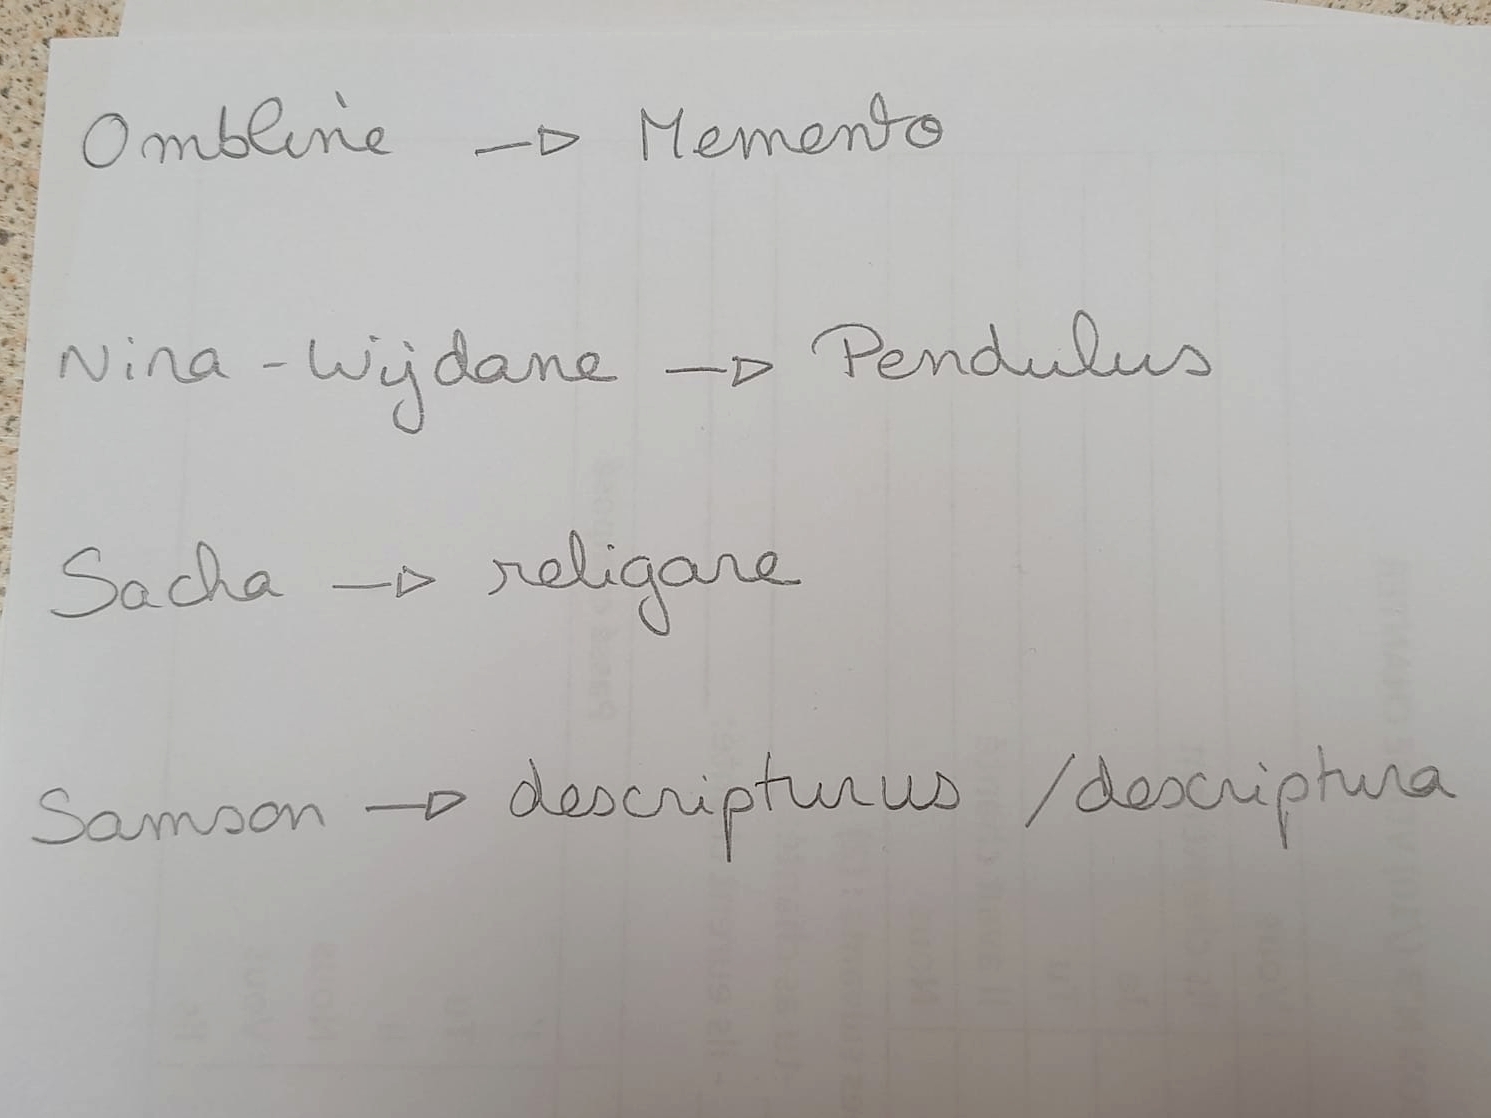 Ombline → Memento
Nina-Wijdane → Pendulus
Sacha → religare
Samson → descripturus / descriptura